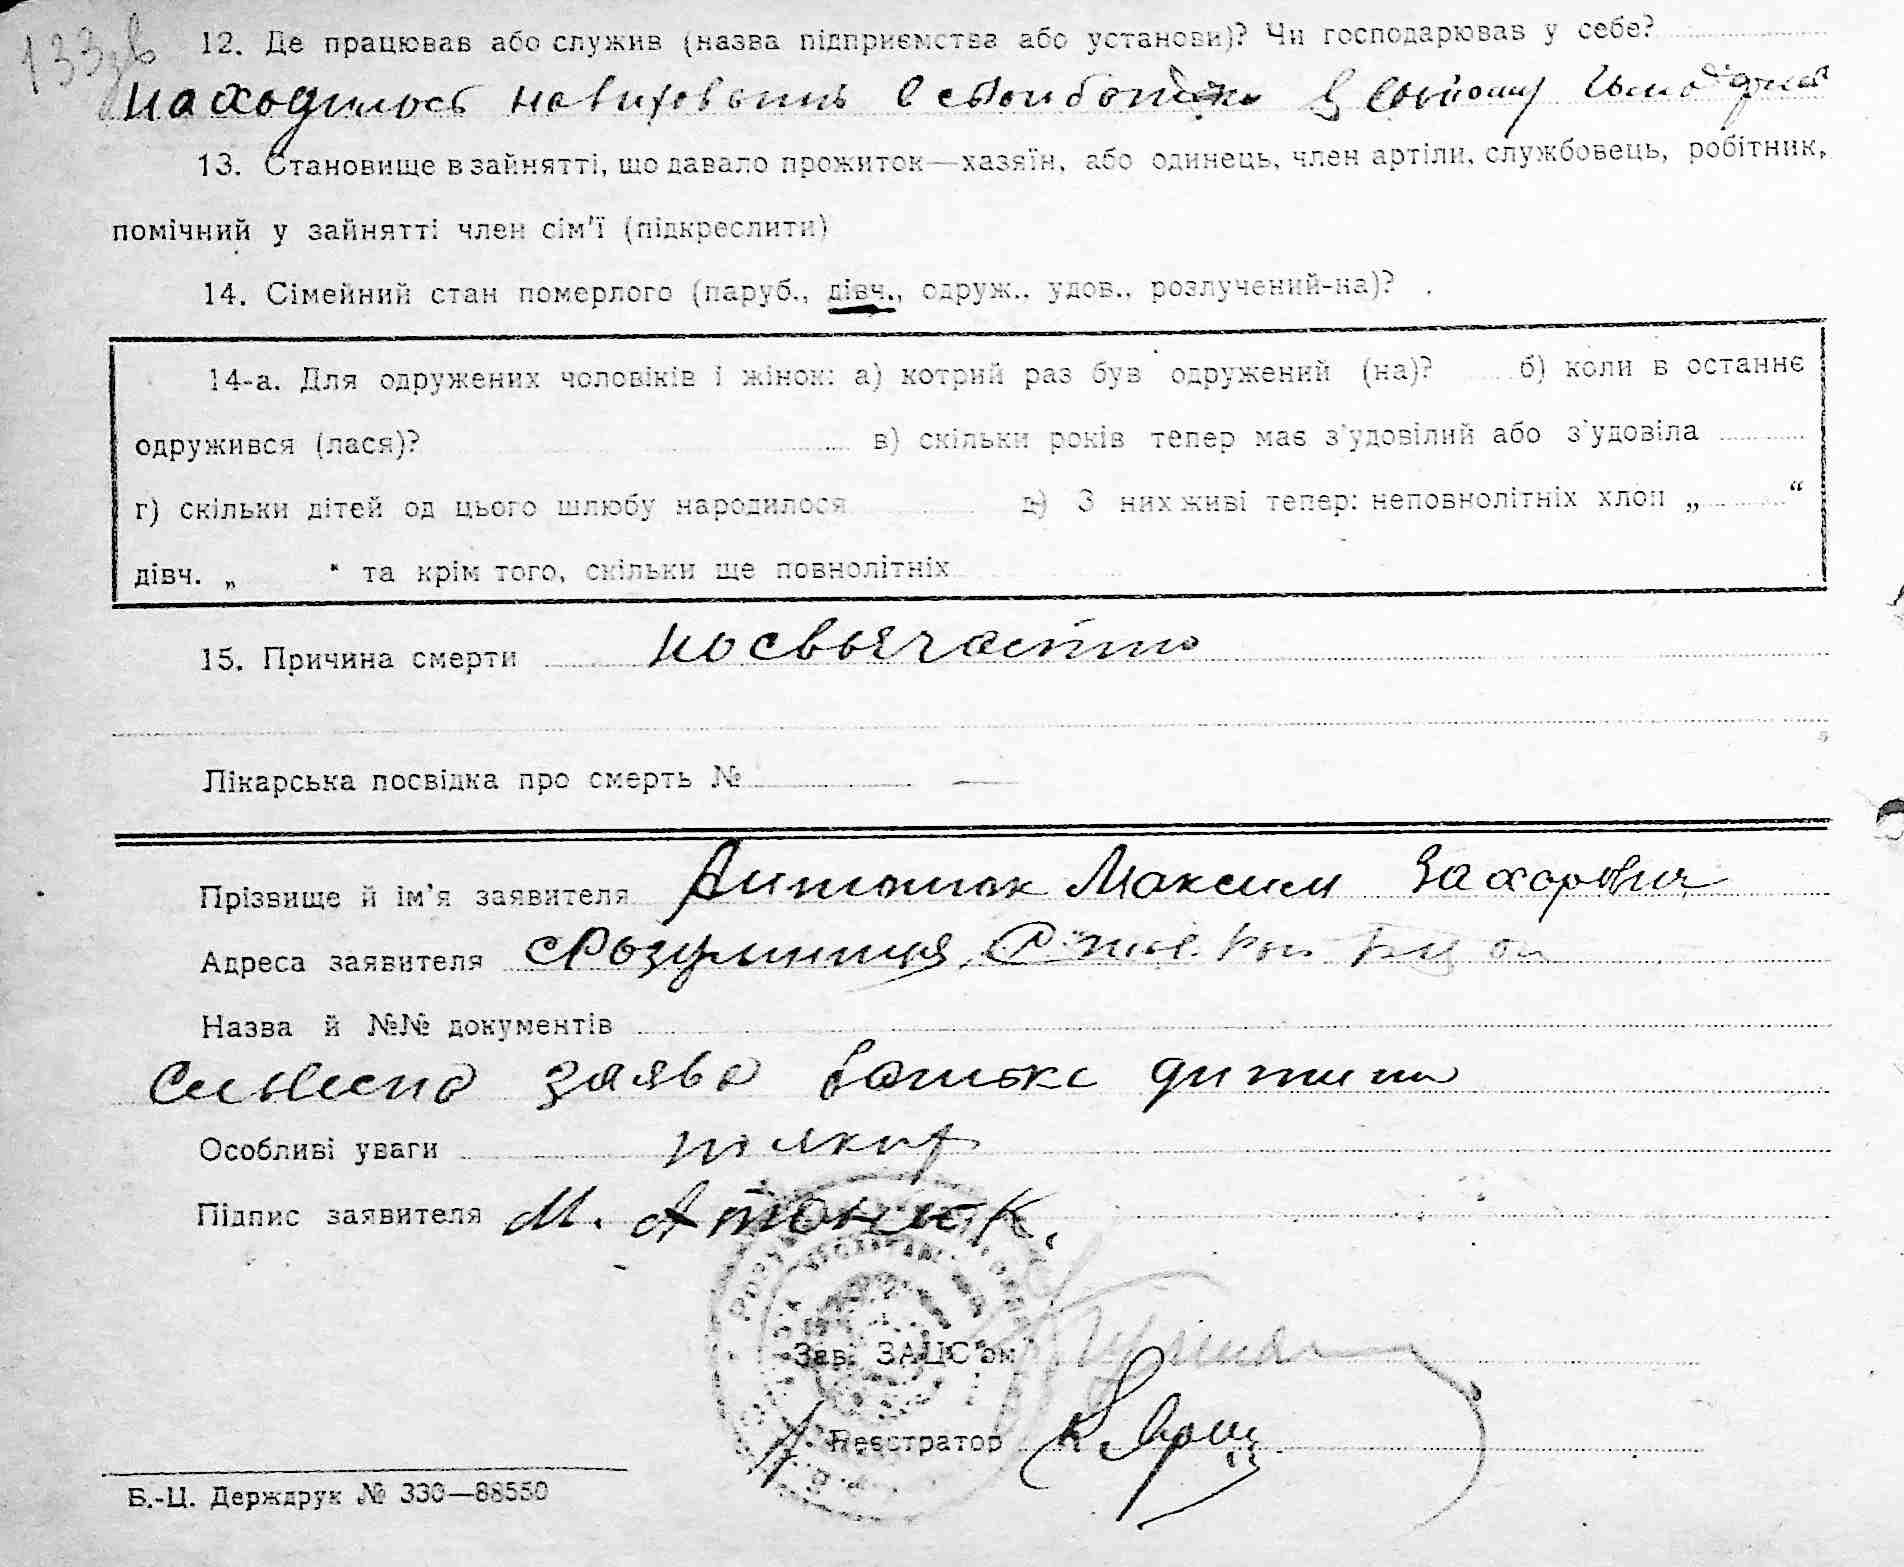 133зв
12. Де працював або служив (назва підприємства або установи)? Чи господарював у себе?
находилось на
13. Становище в зайнятті, що давало прожиток—хазяїн, або одинець, член артіли, службовець, робітник,
помічний у зайнятті член сім'ї (підкреслити)
14. Сімейний стан померлого (паруб., дівч., одруж., удов., розлучений-на)?
14-а. Для одружених чоловіків і жінок: а) котрий раз був одружений (на)? б) коли в останнє
одружився (лася)? в) скільки років тепер має з'удовілий або з'удовіла
г) скільки дітей од цього шлюбу народилося д) З них живі тепер: неповнолітніх хлоп „ “
дівч. „ “ та крім того, скільки ще повнолітніх
15. Причина смерти
Лікарська посвідка про смерть № —
Прізвище й ім'я заявителя Антонюк Максим Захорович
Адреса заявителя с Розумниця
Назва й №№ документів
заява батька дитини
Особливі уваги
Підпис заявителя М. Атонюк.
Зав. ЗАЦС'ом
Реєстратор
Б.-Ц. Держдрук № 330—88550